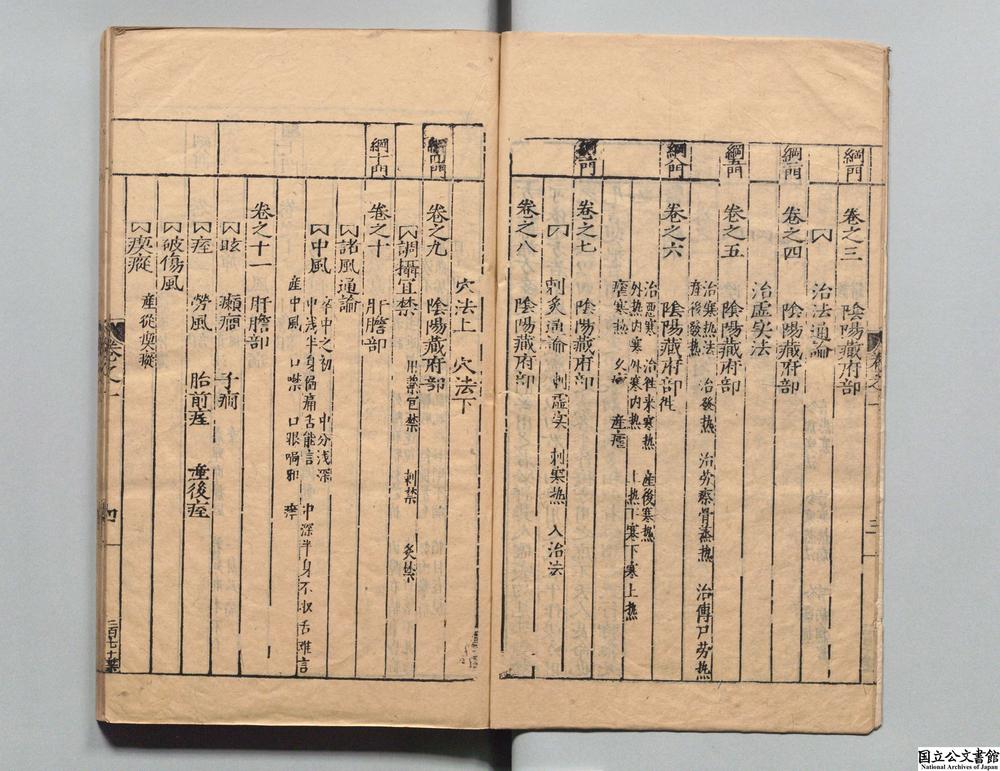 綱門
卷之三　陰陽藏府部
治法通論
綱門
卷之四　陰陽藏府部
治虛实法
綱五門
卷之五　陰陽藏府部
治寒熱法　治發熱　治劳瘵骨蒸热　治傳尸劳热
產後發热
綱六門
卷之六　陰陽藏府部
治惡寒　治往來寒热　產後寒热
外热内寒　外寒内热　上热下寒下寒上热
瘧寒热　久瘧　產瘧
綱門
卷之七　陰陽藏府部
刺灸通論　刺虛实　刺寒热　入治法
卷之八　陰陽藏府部
三
穴法上　穴法下
綱九門
卷之九　陰陽藏府部
調攝宜禁　用藥宜禁　刺禁　灸禁
綱十門
卷之十　肝膽部
諸風通論
中風　卒中之初　中分浅深
中浅半身偏痛舌能言　中深半身不收舌难言
產中風　口噤　口眼喎邪
卷之十一　肝膽部
眩　癲癇　子癇
痓　勞風　胎前痓　產後痓
破傷風
瘈瘲　產後瘈瘲
卷之一
四
国立公文書館
National Archives of Japan